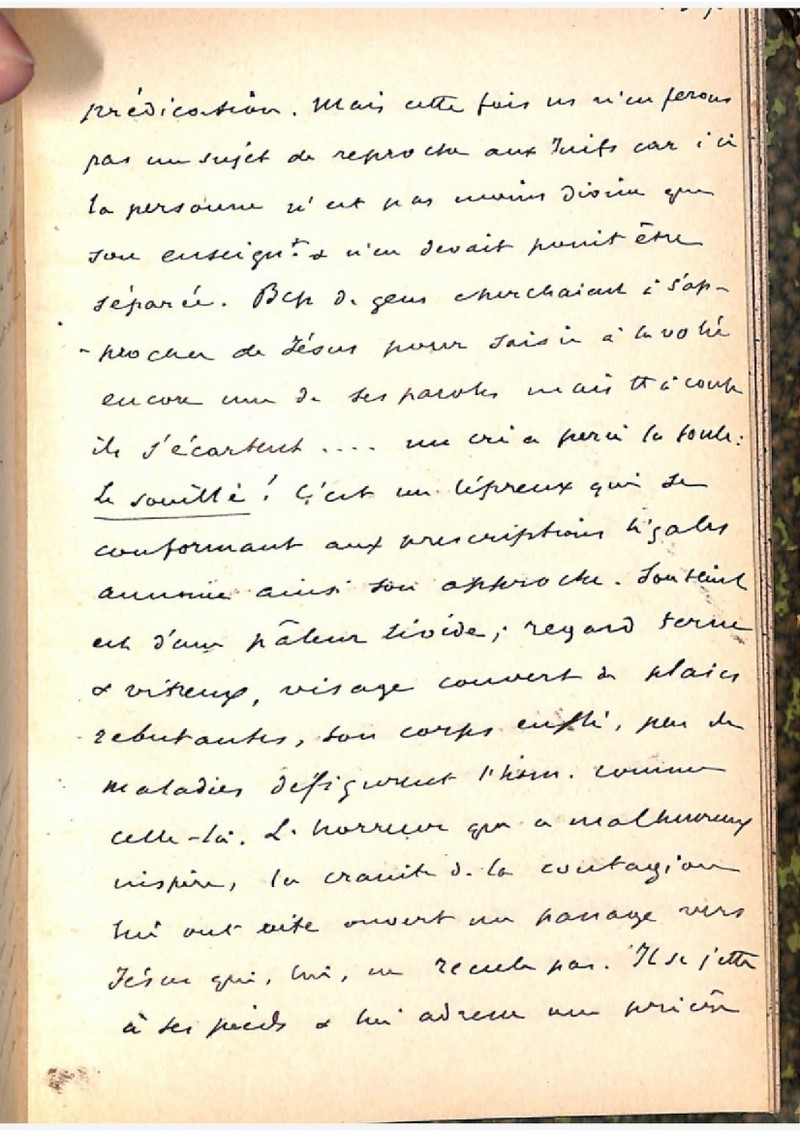 prédication. Mais cette fois ns n'en ferons
pas un sujet de reproche aux Juifs car ici
la personne n'est pas moins divine que
son enseignt. & n'en devait point être
séparée. Bcp de gens cherchaient à s'ap-
-procher de Jésus pour saisir à la volée
encore une de ses paroles mais tt à coup
ils s'écartent .... un cri a percé la foule:
Le souillé ! C'est un lépreux qui se
conformant aux prescriptions légales
annonce ainsi son approche. Son teint
est d'une pâleur livide; regard terne
& vitreux, visage couvert de plaies
rebutantes, son corps enflé, peu de
maladies défigurent l'hom. comme
celle-là. L'horreur que ce malheureux
inspire, la crainte de la contagion
lui ont vite ouvert un passage vers
Jésus qui, lui, ne recule pas. Il se jette
à ses pieds & lui adresse une prière